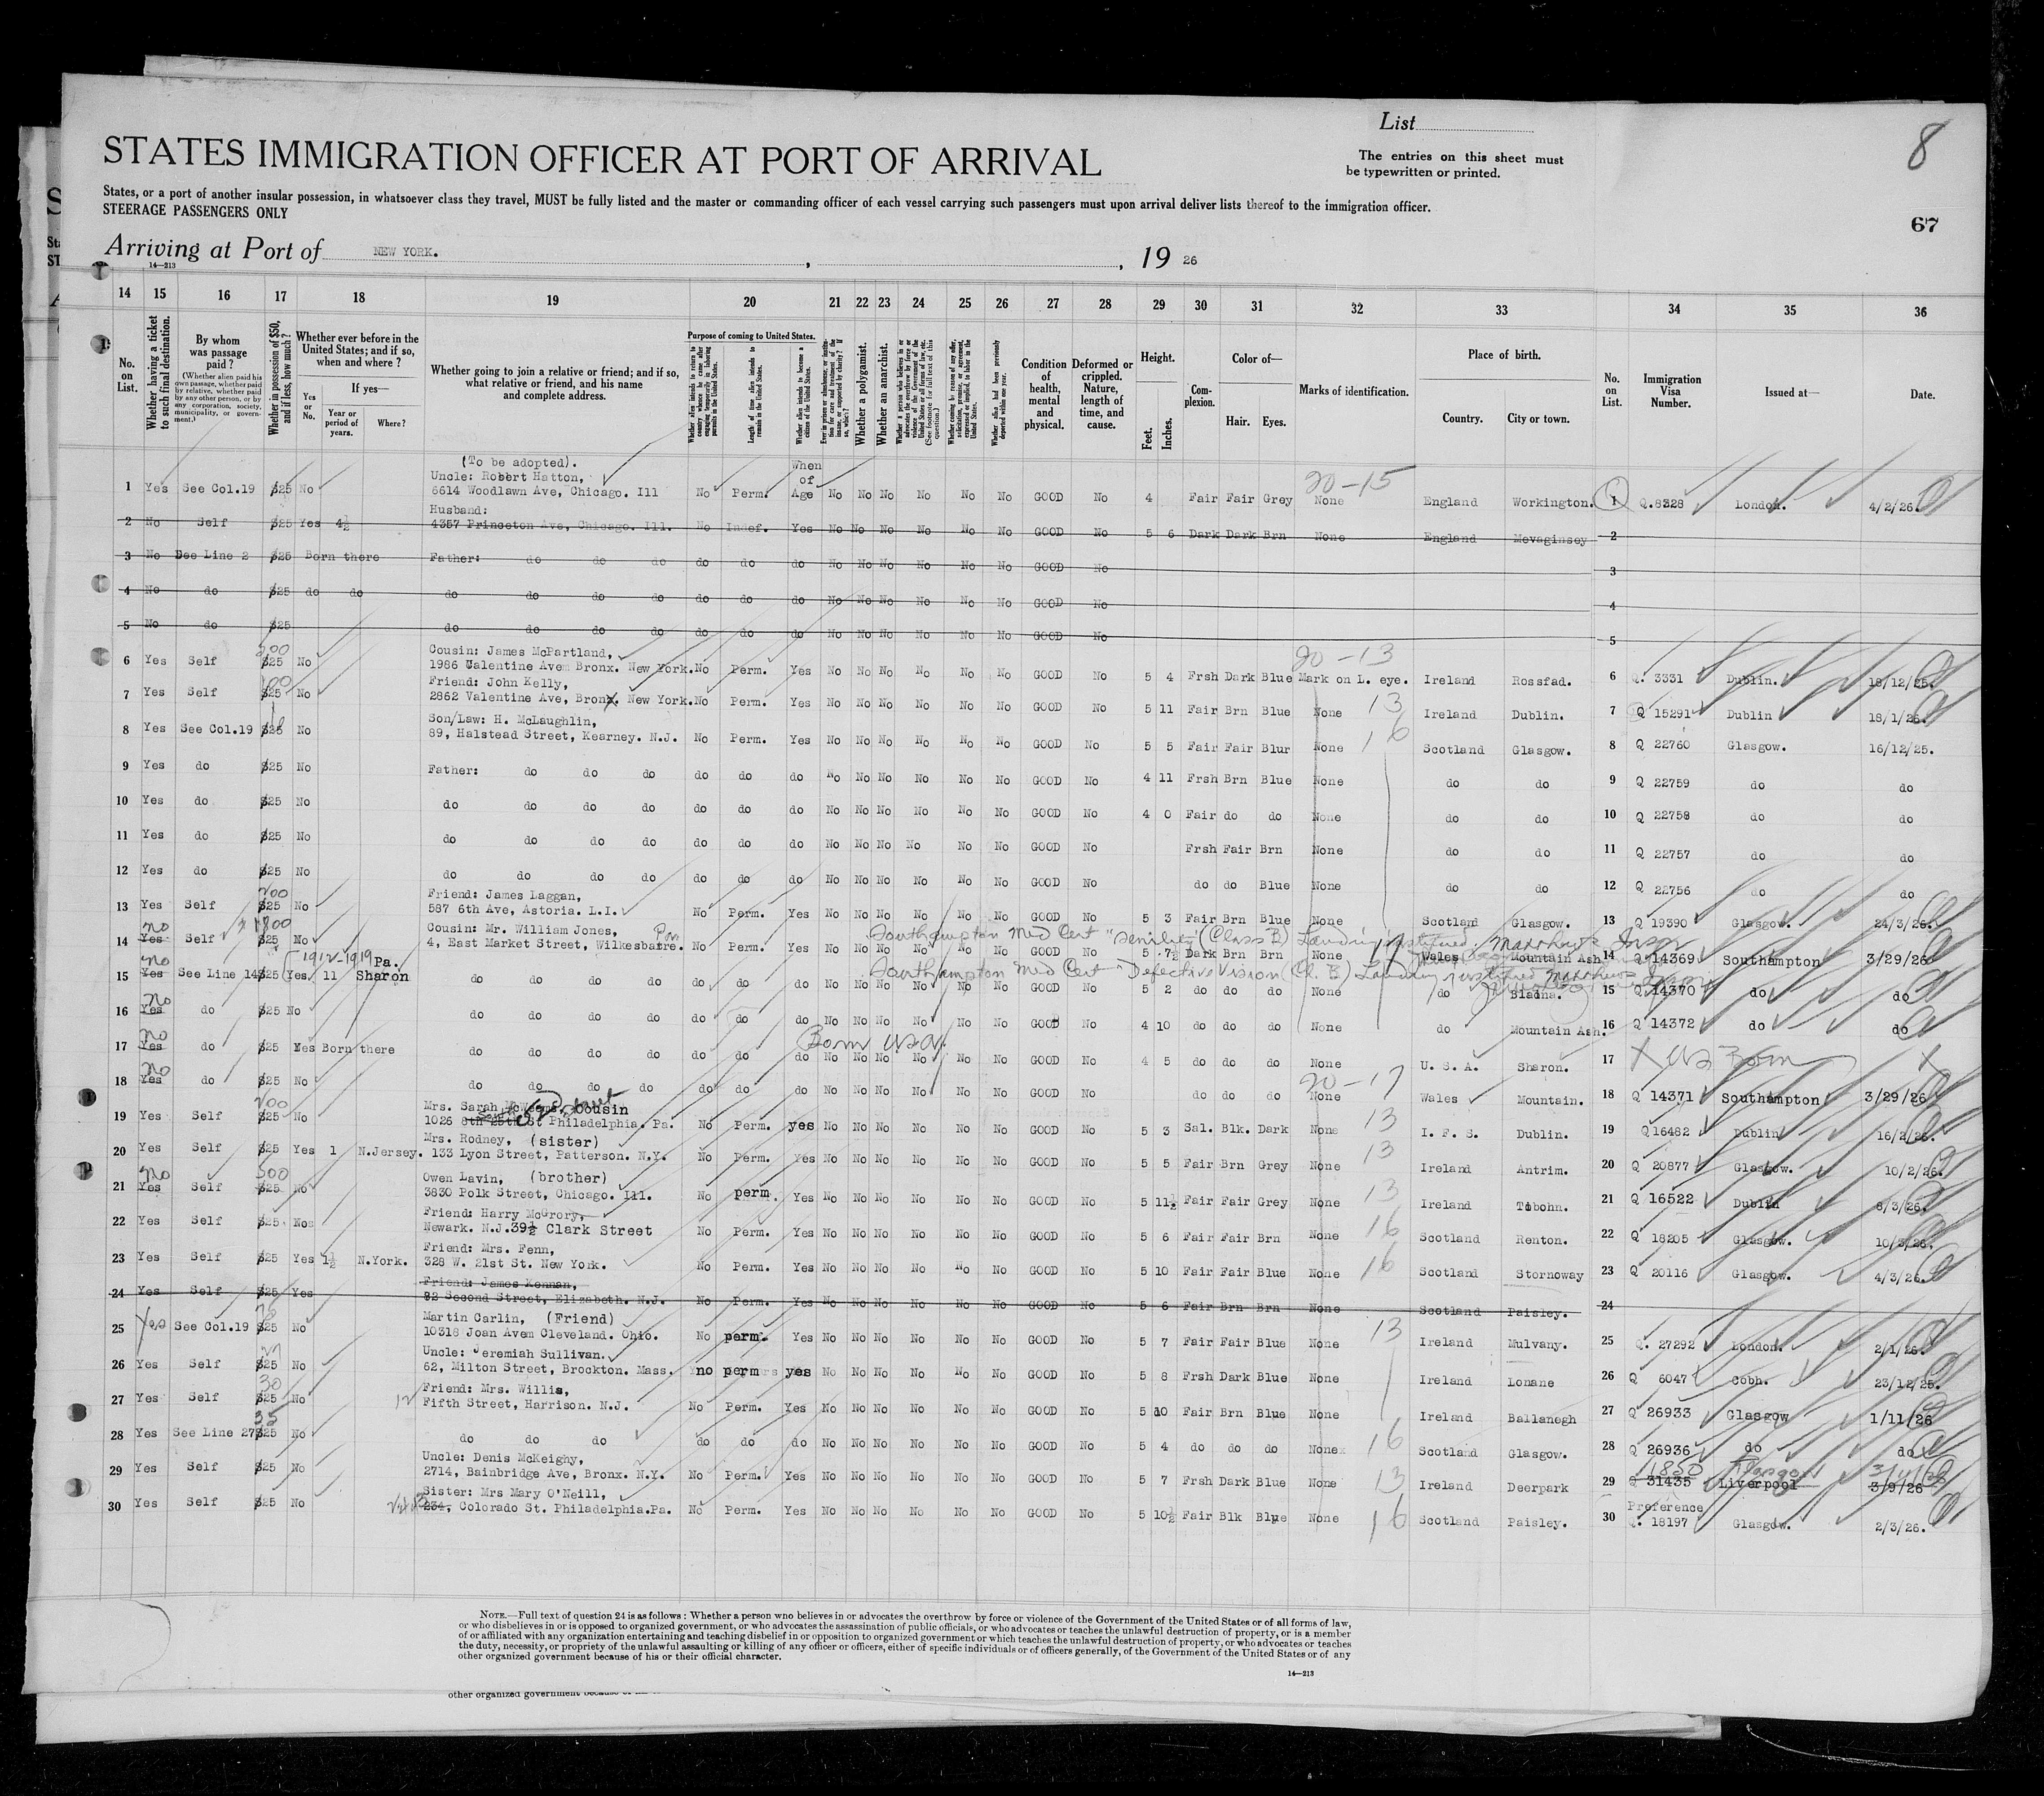 List
STATES IMMIGRATION OFFICER AT PORT OF ARRIVAL
The entries on this sheet must
be typewritten or printed.
8
States, or a port of another insular possession, in whatsoever class they travel, MUST be fully listed and the master or commanding officer of each vessel carrying such passengers must upon arrival deliver lists thereof to the immigration officer.
STEERAGE PASSENGERS ONLY
67
Arriving at Port of NEW YORK. , , 19 26
14—213
14 15 16 17 18 19 20 21 22 23 24 25 26 27 28 29 30 31 32 33 34 35 36
No. on List.
Whether having a ticket to such final destination.
By whom was passage paid?
(Whether alien paid his own passage, whether paid by relative, whether paid by any other person, or by any corporation, society, municipality, or government.)
Whether in possession of $50, and if less, how much?
Whether ever before in the United States; and if so, when and where?
Yes or No.
If yes—
Year or period of years.
Where?
Whether going to join a relative or friend; and if so, what relative or friend, and his name and complete address.
Purpose of coming to United States.
Length of time alien intends to remain in the United States.
Whether alien intends to become a citizen of the United States.
Whether a polygamist.
Whether an anarchist.
Condition of health, mental and physical.
Deformed or crippled. Nature, length of time, and cause.
Height.
Feet. Inches.
Complexion.
Color of—
Hair. Eyes.
Marks of identification.
Place of birth.
Country. City or town.
No. on List.
Immigration Visa Number.
Issued at—
Date.
(To be adopted). When of
Uncle: Robert Hatton, 20-15
1 Yes See Col.19 $25 No 6614 Woodlawn Ave, Chicago. Ill No Perm. Age No No No No No No GOOD No 4 Fair Fair Grey None England Workington. 1 Q.8328 London. 4/2/26.
Husband:
2 No Self $25 Yes 4½ 4357 Princeton Ave, Chicago. Ill. No Indef. Yes No No No No No No GOOD No 5 6 Dark Dark Brn None England Mevaginsey 2
3 No See Line 2 $25 Born there Father: do do do do do do No No No No No No GOOD No 3
4 No do $25 do do do do do do do do do No No No No No No GOOD No 4
5 No do $25 do do do do do do do No No No No No No GOOD No 5
200 Cousin: James McPartland, 20-13
6 Yes Self $25 No 1986 Valentine Avem Bronx. New York. No Perm. Yes No No No No No No GOOD No 5 4 Frsh Dark Blue Mark on L. eye. Ireland Rossfad. 6 Q. 3331 Dublin. 18/12/25.
100 Friend: John Kelly,
7 Yes Self $25 No 2862 Valentine Ave, Bronx. New York. No Perm. Yes No No No No No No GOOD No 5 11 Fair Brn Blue None 13 Ireland Dublin. 7 Q 15291 Dublin 18/1/26.
Son/Law: H. McLaughlin,
8 Yes See Col.19 $25 No 89, Halstead Street, Kearney. N.J. No Perm. Yes No No No No No No GOOD No 5 5 Fair Fair Blur None 16 Scotland Glasgow. 8 Q 22760 Glasgow. 16/12/25.
9 Yes do $25 No Father: do do do do do do No No No No No No GOOD No 4 11 Frsh Brn Blue None do do 9 Q 22759 do do
10 Yes do $25 No do do do do do do do No No No No No No GOOD No 4 0 Fair do do None do do 10 Q 22758 do do
11 Yes do $25 No do do do do do do do No No No No No No GOOD No Frsh Fair Brn None do do 11 Q 22757 do do
12 Yes do $25 No do do do do do do do No No No No No No GOOD No do do Blue None do do 12 Q 22756 do do
200 Friend: James Laggan,
13 Yes Self $25 No 587 6th Ave, Astoria. L.I. No Perm. Yes No No No No No No GOOD No 5 3 Fair Brn Blue None Scotland Glasgow. 13 Q 19390 Glasgow. 24/3/26.
no 1800 Cousin: Mr. William Jones, Southampton Med Cert "Senility" (Class B) Landing
14 Yes Self $25 No 4, East Market Street, Wilkesbarre. No Perm. Yes No No No No No No GOOD No 5 7½ Dark Brn Brn Wales Mountain Ash 14 Q 14369 Southampton 3/29/26
no 1912-1919 Pa. Southampton Med Cert "Defective Vision (Cl. B) Landing
15 Yes See Line 14 $25 Yes 11 Sharon do do do do do do do No No No No No No GOOD No 5 2 do do do None do Bladna. 15 Q 14370 do do
No
16 Yes do $25 No do do do do do do do No No No No No No GOOD No 4 10 do do do None do Mountain Ash. 16 Q 14372 do do
No Born USA
17 Yes do $25 Yes Born there do do do do do do do No No No No No No GOOD No 4 5 do do do None U. S. A. Sharon. 17 X US Born X
No 20-17
18 Yes do $25 No do do do do do do do No No No No No No GOOD No do do do None Wales Mountain. 18 Q 14371 Southampton 3/29/26
200 Mrs. Sarah McWeems, Cousin
19 Yes Self $25 No 1026 8th 25th St Philadelphia. Pa. No Perm. yes No No No No No No GOOD No 5 3 Sal. Blk. Dark None 13 I. F. S. Dublin. 19 Q16482 Dublin 16/2/26.
Mrs. Rodney, (sister)
20 Yes Self $25 Yes 1 N.Jersey. 133 Lyon Street, Patterson. N.Y. No Perm. Yes No No No No No No GOOD No 5 5 Fair Brn Grey None 13 Ireland Antrim. 20 Q 20877 Glasgow. 10/2/26.
No 500 Owen Lavin, (brother)
21 Yes Self $25 No 3830 Polk Street, Chicago. Ill. No perm. Yes No No No No No No GOOD No 5 11½ Fair Fair Grey None 13 Ireland Tobohn. 21 Q 16522 Dublin 8/3/26.
Friend: Harry McGrory,
22 Yes Self $25. Nos Newark. N.J. 39½ Clark Street No Perm. Yes No No No No No No GOOD No 5 6 Fair Fair Brn None 16 Scotland Renton. 22 Q 18205 Glasgow. 10/3/26.
Friend: Mrs. Fenn,
23 Yes Self $25 Yes 1½ N.York. 328 W. 21st St. New York. No Perm. Yes No No No No No No GOOD No 5 10 Fair Fair Blue None 16 Scotland Stornoway 23 Q 20116 Glasgow. 4/3/26.
Friend: James Kennan,
24 Yes Self $25 Yes 82 Second Street, Elizabeth. N.J. No Perm. Yes No No No No No No GOOD No 5 6 Fair Brn Brn None Scotland Paisley. 24
Martin Carlin, (Friend)
25 Yes See Col.19 $25 No 10318 Joan Avem Cleveland. Ohio. No perm. Yes No No No No No No GOOD No 5 7 Fair Fair Blue None 13 Ireland Mulvany. 25 Q. 27292 London. 2/1/26.
Uncle: Jeremiah Sullivan.
26 Yes Self $25 No 62, Milton Street, Brockton. Mass. no perm yes No No No No No No GOOD No 5 8 Frsh Dark Blue None Ireland Lonane 26 Q 6047 Cobh. 23/12/25.
30 Friend: Mrs. Willis,
27 Yes Self $25 No 12 Fifth Street, Harrison. N.J. No Perm. Yes No No No No No No GOOD No 5 10 Fair Brn Blue None Ireland Ballanegh 27 Q 26933 Glasgow 1/11/26
35
28 Yes See Line 27 $25 No do do do do do do No No No No No No GOOD No 5 4 do do do None 16 Scotland Glasgow. 28 Q 26936 do do
Uncle: Denis McKeighy, 1850 Glasgow
29 Yes Self $25 No 2714, Bainbridge Ave, Bronx. N.Y. No Perm. Yes No No No No No No GOOD No 5 7 Frsh Dark Blue None 13 Ireland Deerpark 29 Q 31435 Liverpool 3/9/26
Sister: Mrs Mary O'Neill, Preference
30 Yes Self $25 No 234, Colorado St. Philadelphia.Pa. No Perm. Yes No No No No No No GOOD No 5 10½ Fair Blk Blue None 16 Scotland Paisley. 30 Q. 18197 Glasgow. 2/3/26.
NOTE.—Full text of question 24 is as follows: Whether a person who believes in or advocates the overthrow by force or violence of the Government of the United States or of all forms of law,
or who disbelieves in or is opposed to organized government, or who advocates the assassination of public officials, or who advocates or teaches the unlawful destruction of property, or is a member
of or affiliated with any organization entertaining and teaching disbelief in or opposition to organized government or which teaches the unlawful destruction of property, or who advocates or teaches
the duty, necessity, or propriety of the unlawful assaulting or killing of any officer or officers, either of specific individuals or of officers generally, of the Government of the United States or of any
other organized government because of his or their official character.
14—213
other organized government because of